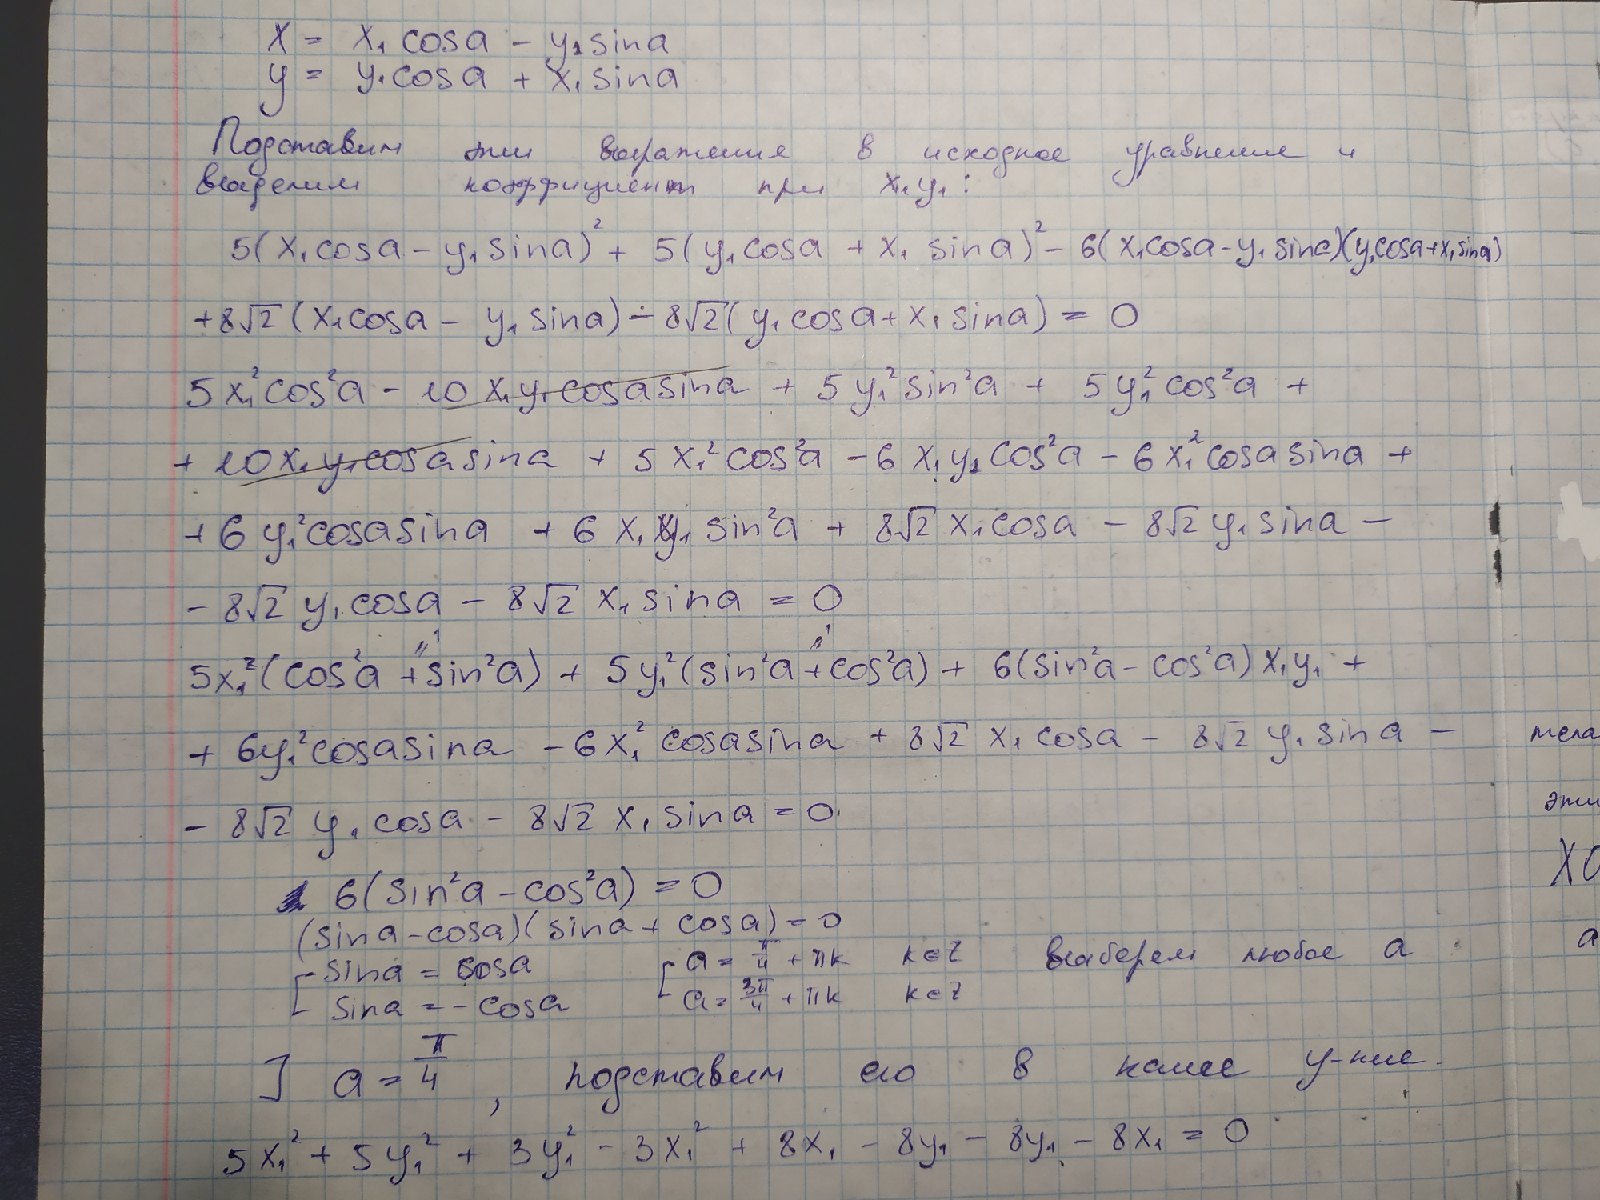 x = x₁ cosa - y₁ sina
y = y₁ cosa + x₁ sina
Подставим эти выражения в исходное уравнение и
выделим коэффициент при x₁y₁:
5(x₁cosa - y₁ sina)² + 5(y₁cosa + x₁ sina)² - 6(x₁cosa - y₁ sina)(y₁cosa+x₁sina)
+8√2 (x₁cosa - y₁ sina) - 8√2(y₁ cosa + x₁ sina) = 0
5x₁²cos²a - 10 x₁y₁cosasina + 5y₁²sin²a + 5y₁²cos²a +
+ 10x₁y₁cosasina + 5x₁²cos²a - 6x₁y₁cos²a - 6x₁²cosasina +
+ 6y₁²cosasina + 6x₁y₁ sin²a + 8√2 x₁cosa - 8√2 y₁sina -
- 8√2 y₁cosa - 8√2 x₁sina = 0
5x₁²(cos²a + sin²a) + 5y₁²(sin²a + cos²a) + 6(sin²a - cos²a)x₁y₁ +
+ 6y₁²cosasina - 6x₁²cosasina + 8√2 x₁cosa - 8√2 y₁sina -
- 8√2 y₁cosa - 8√2 x₁sina = 0.
6(sin²a - cos²a) = 0
(sina - cosa)(sina + cosa) = 0
[ sina = cosa [ a = π/4 + πk k∈Z выберем любое a
sina = - cosa a = 3π/4 + πk k∈Z
] a = π/4, подставим его в наше у-ние.
5x₁² + 5y₁² + 3y₁² - 3x₁² + 8x₁ - 8y₁ - 8y₁ - 8x₁ = 0
тела
эти
a